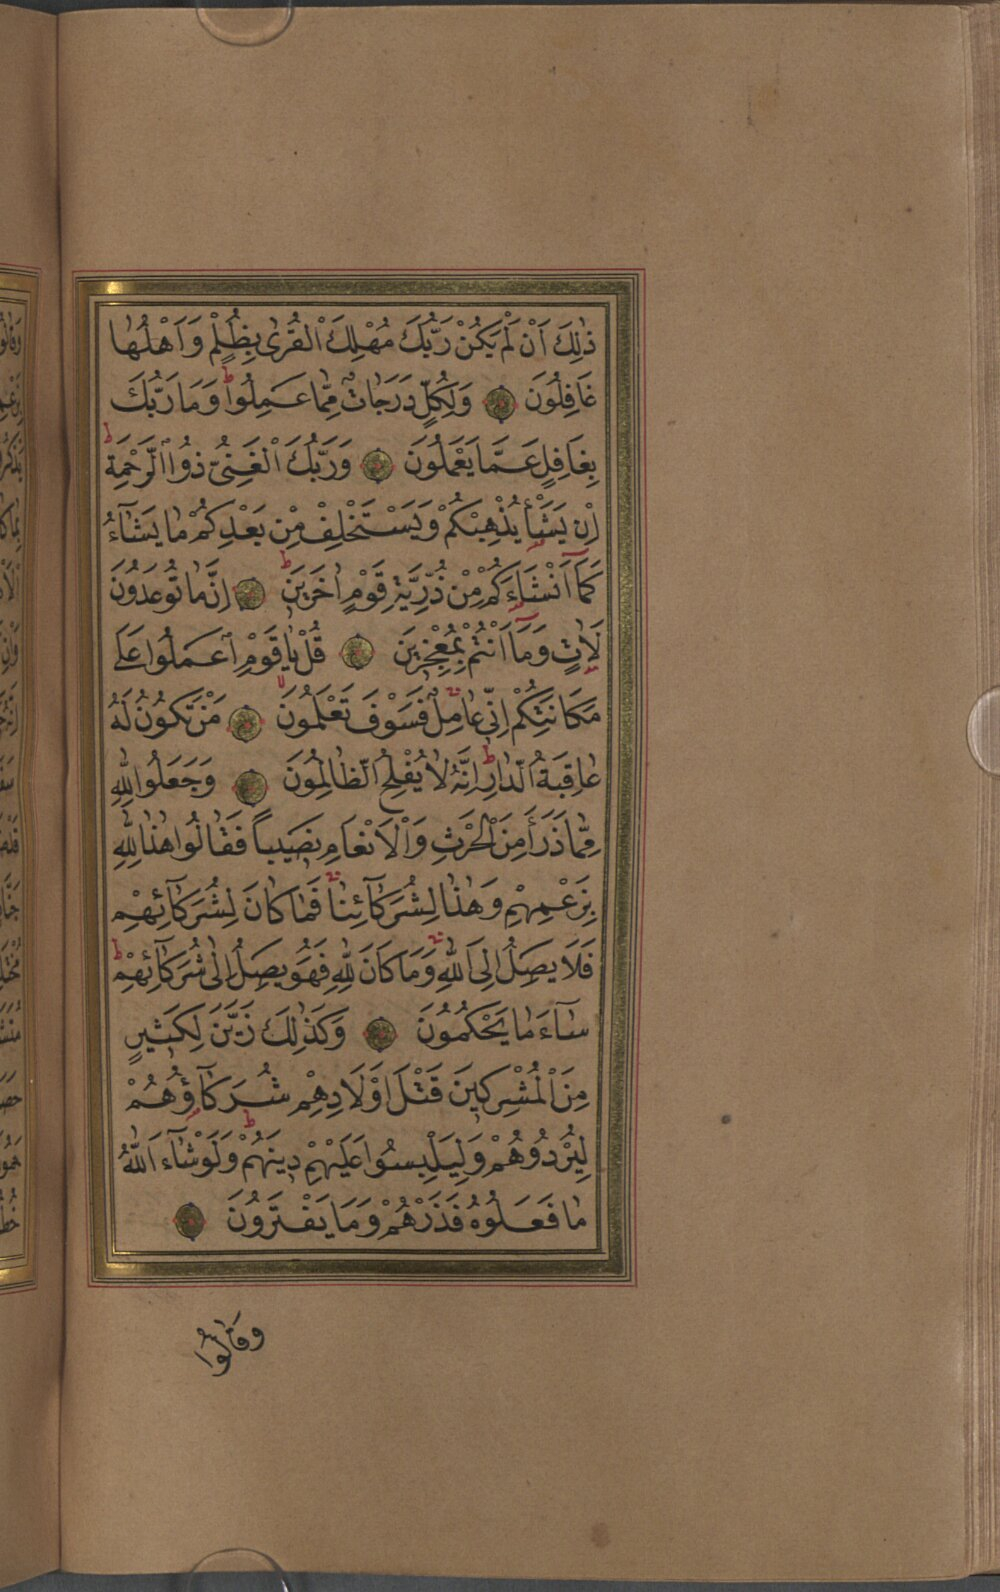 ذٰلِكَ اَنْ لَمْ يَكُنْ رَبُّكَ مُهْلِكَ الْقُرٰى بِظُلْمٍ وَاَهْلُهَا
غَافِلُونَ وَلِكُلٍّ دَرَجَاتٌ مِمَّا عَمِلُوا وَمَا رَبُّكَ
بِغَافِلٍ عَمَّا يَعْمَلُونَ وَرَبُّكَ الْغَنِيُّ ذُو الرَّحْمَةِ
اِنْ يَشَأْ يُذْهِبْكُمْ وَيَسْتَخْلِفْ مِنْ بَعْدِكُمْ مَا يَشَآءُ
كَمَآ اَنْشَاَكُمْ مِنْ ذُرِّيَّةِ قَوْمٍ اٰخَرِينَ اِنَّ مَا تُوعَدُونَ
لَاٰتٍ وَمَآ اَنْتُمْ بِمُعْجِزِينَ قُلْ يَا قَوْمِ اعْمَلُوا عَلٰى
مَكَانَتِكُمْ اِنِّي عَامِلٌ فَسَوْفَ تَعْلَمُونَ مَنْ تَكُونُ لَهُ
عَاقِبَةُ الدَّارِ اِنَّهُ لَا يُفْلِحُ الظَّالِمُونَ وَجَعَلُوا لِلّٰهِ
مِمَّا ذَرَاَ مِنَ الْحَرْثِ وَالْاَنْعَامِ نَصِيباً فَقَالُوا هٰذَا لِلّٰهِ
بِزَعْمِهِمْ وَهٰذَا لِشُرَكَآئِنَا فَمَا كَانَ لِشُرَكَآئِهِمْ
فَلَا يَصِلُ اِلَى اللّٰهِ وَمَا كَانَ لِلّٰهِ فَهُوَ يَصِلُ اِلٰى شُرَكَآئِهِمْ
سَآءَ مَا يَحْكُمُونَ وَكَذٰلِكَ زَيَّنَ لِكَثِيرٍ
مِنَ الْمُشْرِكِينَ قَتْلَ اَوْلَادِهِمْ شُرَكَآؤُهُمْ
لِيُرْدُوهُمْ وَلِيَلْبِسُوا عَلَيْهِمْ دِينَهُمْ وَلَوْ شَآءَ اللّٰهُ
مَا فَعَلُوهُ فَذَرْهُمْ وَمَا يَفْتَرُونَ
وَقَالُوا